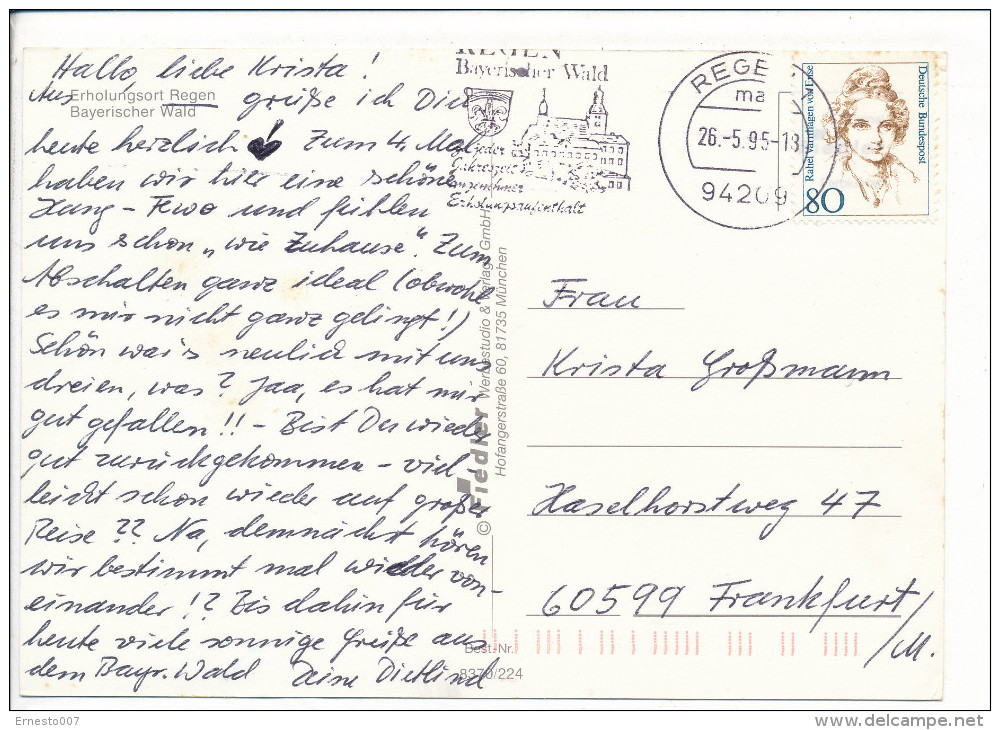 Hallo, liebe Krista!
Aus Erholungsort Regen grüße ich Dich
Bayerischer Wald
heute herzlich! Zum 4. Mal
haben wir hier eine schöne
Hang-Fewo und fühlen
uns schon „wie Zuhause". Zum
Abschalten ganz ideal (obwohl
es mir nicht ganz gelingt!)
Schön war's neulich mit uns
dreien, was? Jaa, es hat mir
gut gefallen!! - Bist Du wieder
gut zurückgekommen - viel-
leicht schon wieder auf großer
Reise?? Na, demnächst hören
wir bestimmt mal wieder von-
einander!? Bis dahin für
heute viele sonnige Grüße aus
dem Bayr. Wald Deine Dietlind
REGEN
Bayerischer Wald
jeder
Jahreszeit
angenehmer
Erholungsaufenthalt
REGEN
ma
26.-5.95-18
94209
Rahel Varnhagen von Ense
Deutsche Bundespost
80
© Fiedler Werbestudio & Verlags GmbH
Hofangerstraße 60, 81735 München
Frau
Krista Großmann
Haselhorstweg 47
60599 Frankfurt/
/M.
Best.-Nr.
8370/224
Ernesto007
www.delcampe.net